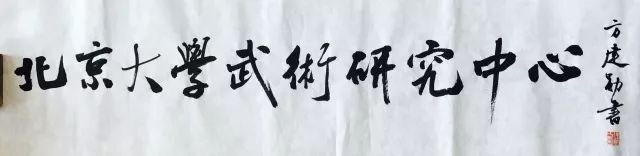 北京大學武術研究中心
方建勛書